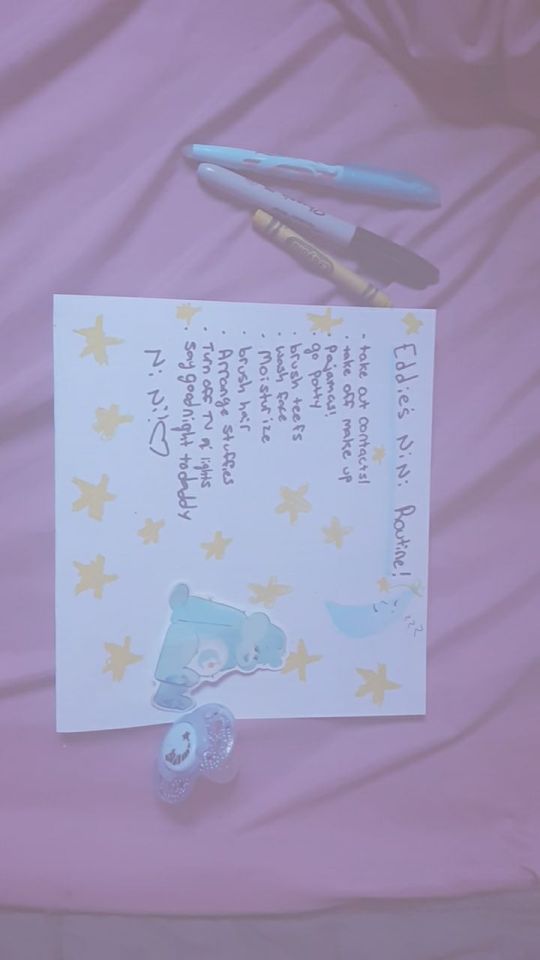 Eddie's Ni Ni Routine!
- take out contacts!
• take off make up
• Pajamas!
• go potty
• brush teefs
• wash face
• Moisturize
• brush hair
• Arrange stuffies
• Turn off TV & lights
• Say goodnight to daddy
Ni Ni! ♡
zzz
Sharpie
Crayola